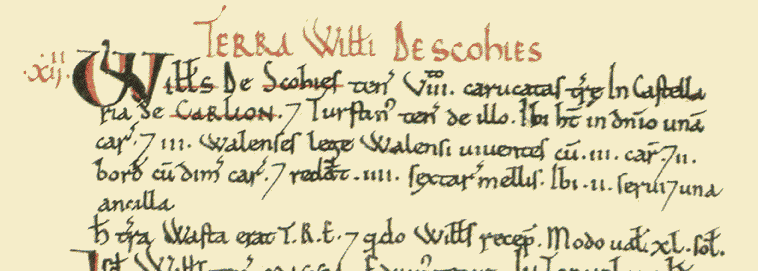 TERRA Willi DE SCOHIES
.XII. Wills De Scohies ten̄ VIII. carucatas træ In Castella
ria de CARLION. ⁊ Turstin' ten̄ de illo. Ibi ht̄ in dn̄io unā
car'. ⁊ III. Walenses lege Walensi uiuentes cū. III. car'. ⁊ II.
bord' cū dim' car'. ⁊ redd̄t. IIII. sextar' mellis. Ibi. II. serui ⁊ una
ancilla
H̄ tr̄a Wasta erat T.R.E. ⁊ qdo Wills recep̄. Modo ual'. XL. sol'.
Wills